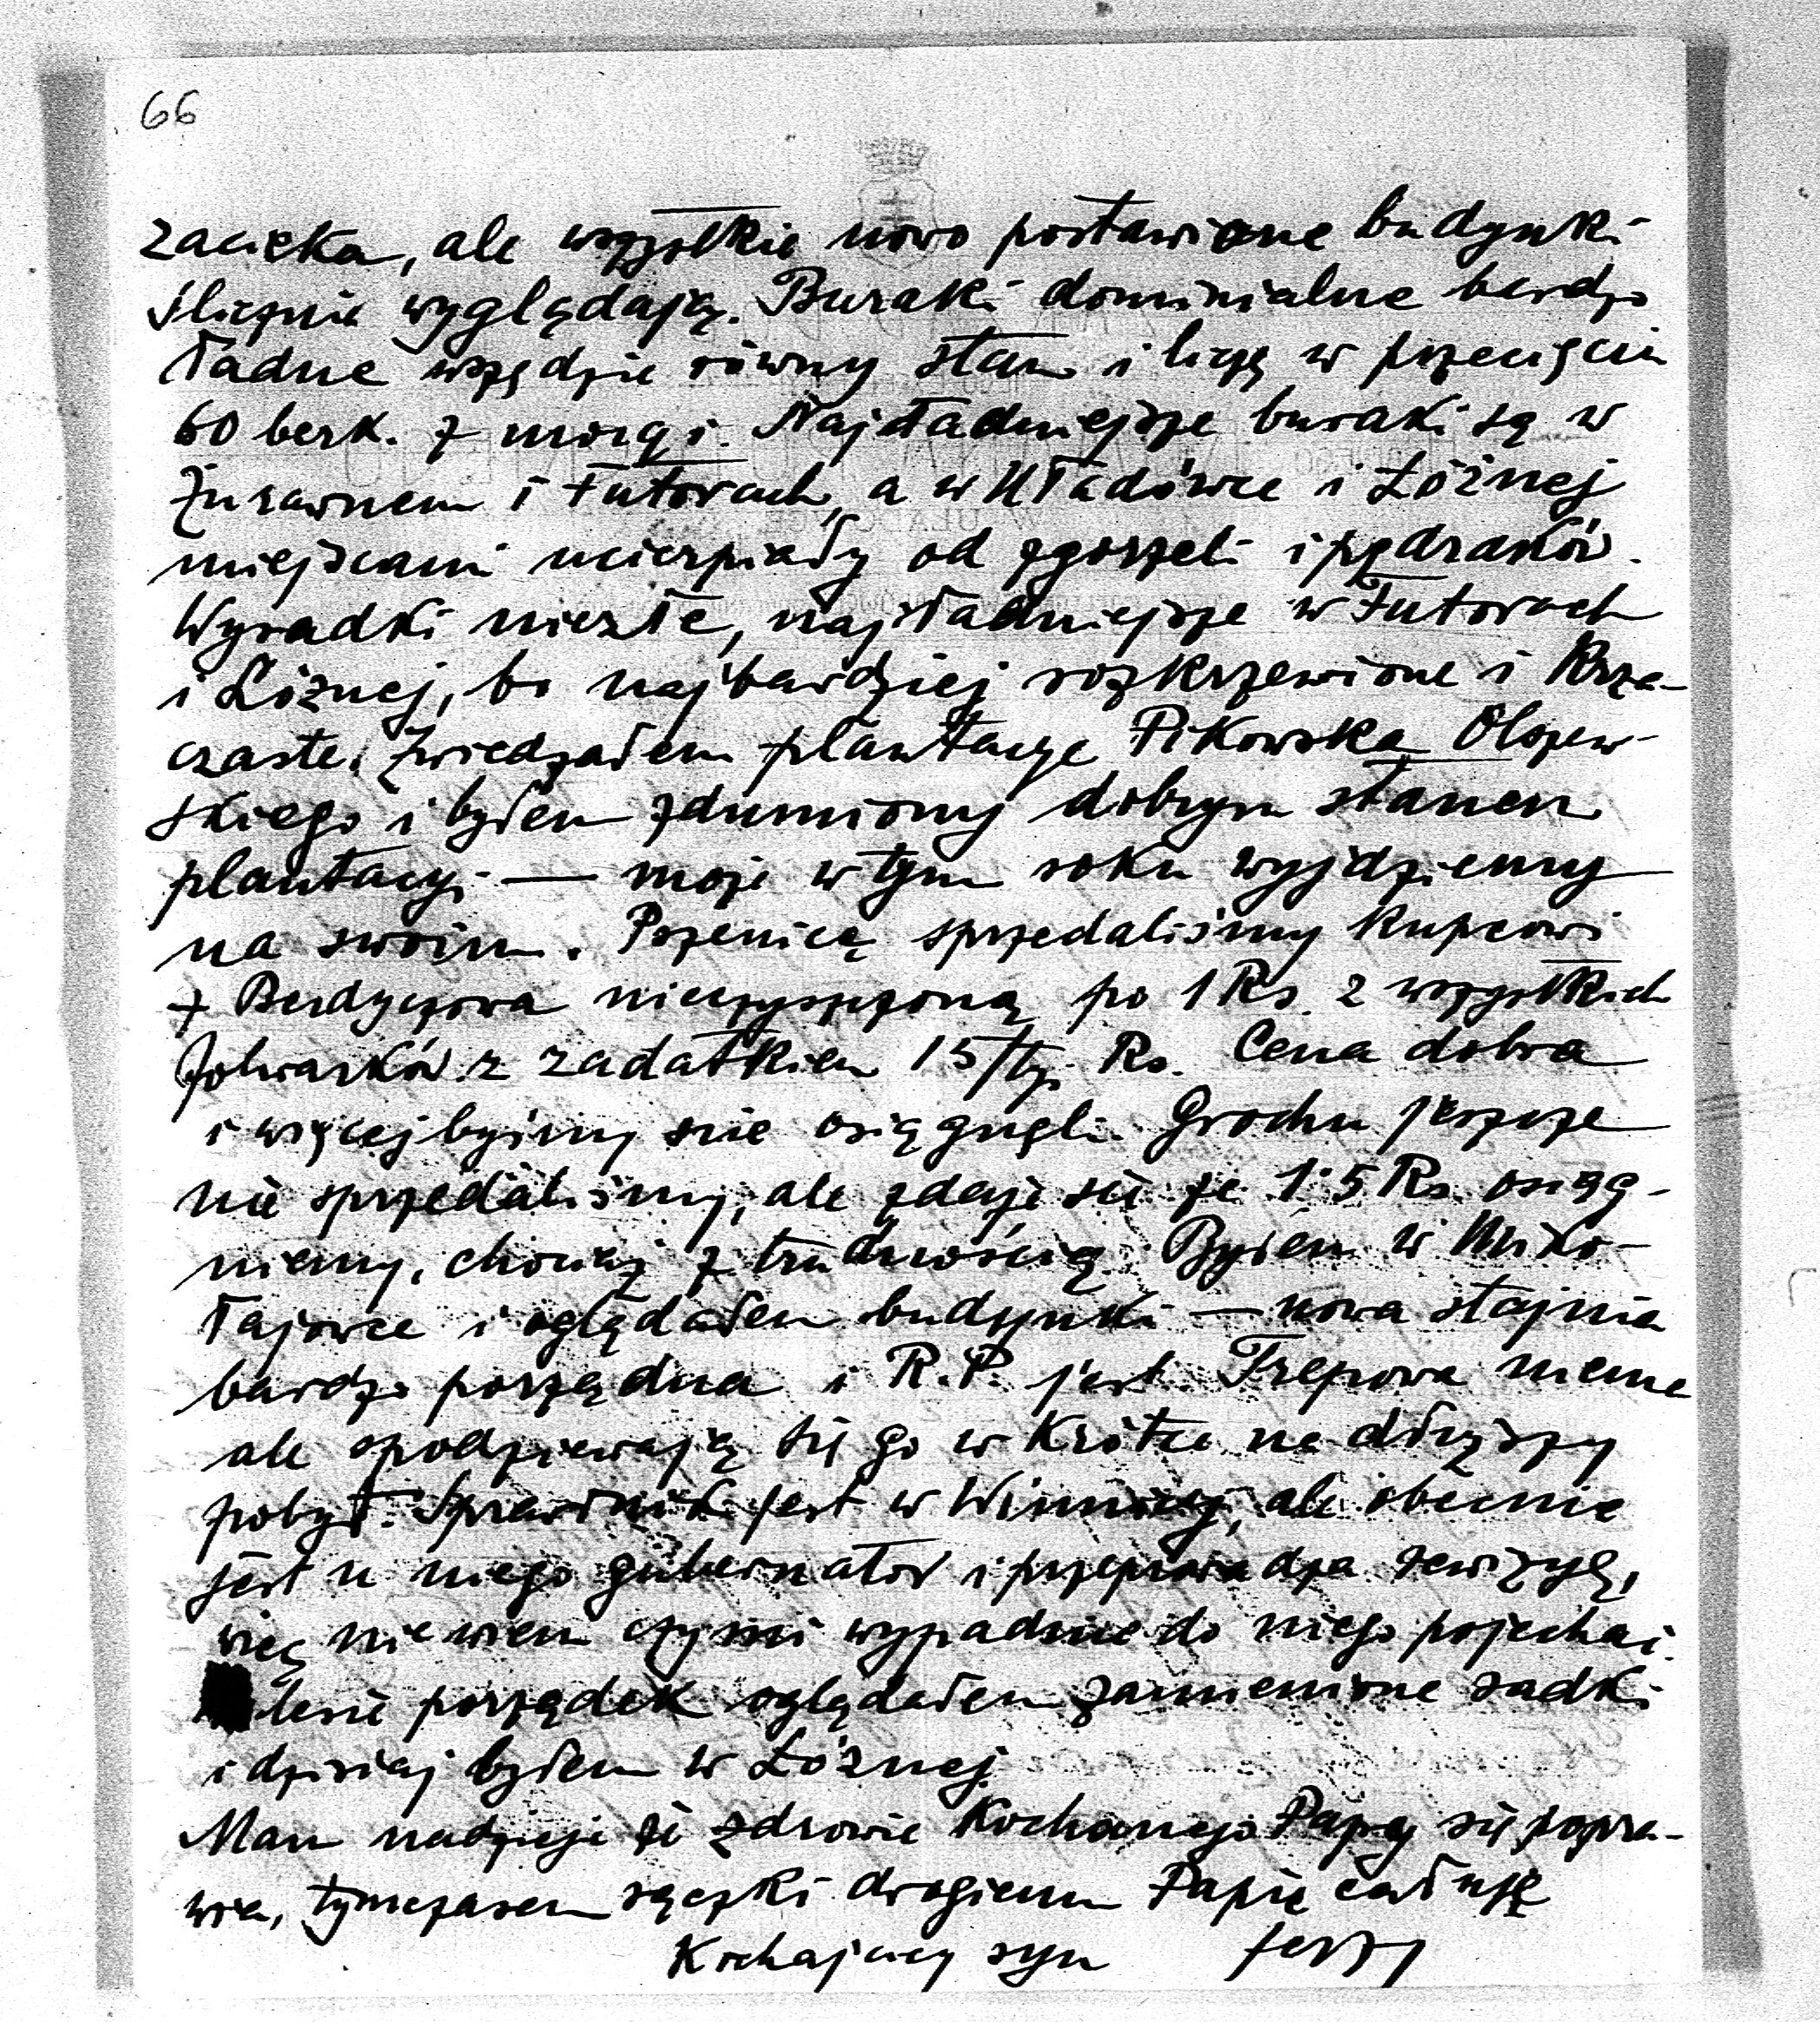 66
zacieka, ale wszystkie nowo postawione budynki
ślicznie wyglądają. Buraki dominialne bardzo
ładne wszędzie równy stan i liczę w przecięciu
60 berk. z morgi. Najładniejsze buraki są w
Żurawnem i Futorach, a w Uładówce i Łóżnej
miejscami ucierpiały od zgorzeli i pędraków.
Wysadki niezłe, najładniejsze w Futorach
i Łóżnej, bo najbardziej rozkrzewione i krza-
czaste. Zwiedzałem plantacje Pikowską Olszew-
skiego i byłem zdumiony dobrym stanem
plantacyi — może w tym roku wyjdziemy
na swoim. Pszenicę sprzedaliśmy kupcowi
z Berdyczowa nieczyszczoną po 1 Rs. z wszystkich
folwarków z zadatkiem 15/ty. Rs. Cena dobra
i więcej byśmy nie osiągnęli. Grochu jeszcze
nie sprzedaliśmy, ale zdaje się że 1·5 Rs. osiąg-
niemy, chociaż z trudnością. Byłem w Miko-
łajowce i oglądałem budynki — nowa stajnia
bardzo porządna i R.P. jest. Trepowa niema
ale spodziewają się go w krótce na dłuższy
pobyt. Sprawnik jest w Winnicy, ale obecnie
jest u niego gubernator i przeprowadza rewizyę,
więc nie wiem czy mi wypadnie do niego pojechać.
lesie porządek oglądałem zamienione sadki
i dzisiaj byłem w Łóżnej.
Mam nadzieję że zdrowie Kochanego Papy się popra-
wia, tymczasem rączki drogiemu Papie całuję
Kochający syn Jerzy